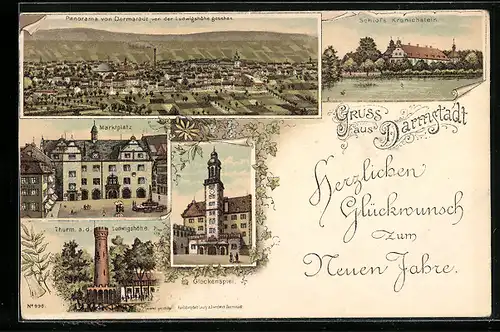 Panorama von Darmstadt, von der Ludwigshöhe gesehen.
Schloss Kranichstein.
Gruss
aus Darmstadt
Marktplatz
Herzlichen
Glückwunsch
zum
Neuen Jahre.
Thurm a. d. Ludwigshöhe.
Glockenspiel.